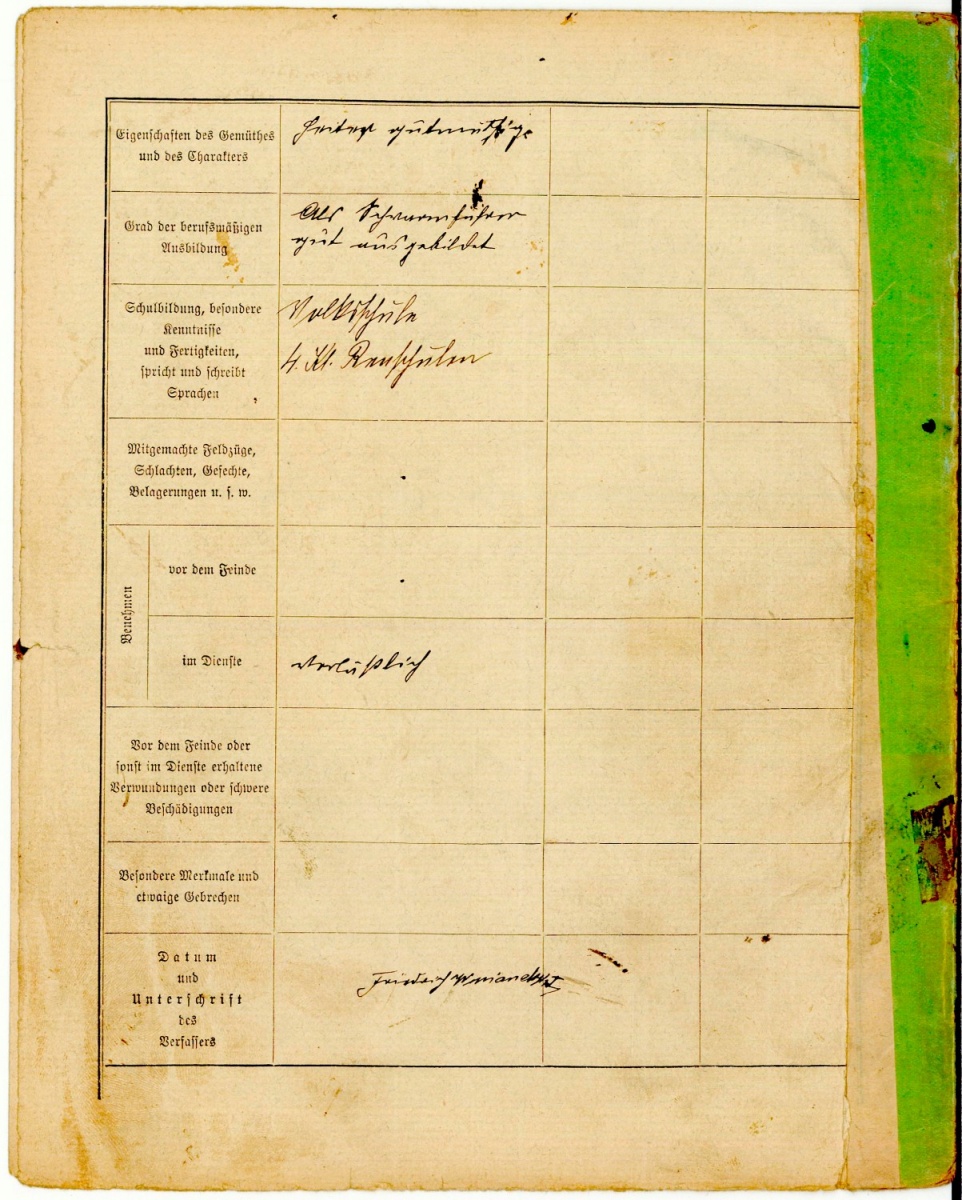 Eigenschaften des Gemüthes
und des Charakters
heiter gutmüthig.
Grad der berufsmäßigen
Ausbildung
Als Schwarmführer
gut ausgebildet
Schulbildung, besondere
Kenntnisse
und Fertigkeiten,
spricht und schreibt
Sprachen
Volksschule
4. Kl.
Mitgemachte Feldzüge,
Schlachten, Gefechte,
Belagerungen u. s. w.
Benehmen
vor dem Feinde
im Dienste
verläßlich
Vor dem Feinde oder
sonst im Dienste erhaltene
Verwundungen oder schwere
Beschädigungen
Besondere Merkmale und
etwaige Gebrechen
Datum
und
Unterschrift
des
Verfassers
Friedrich